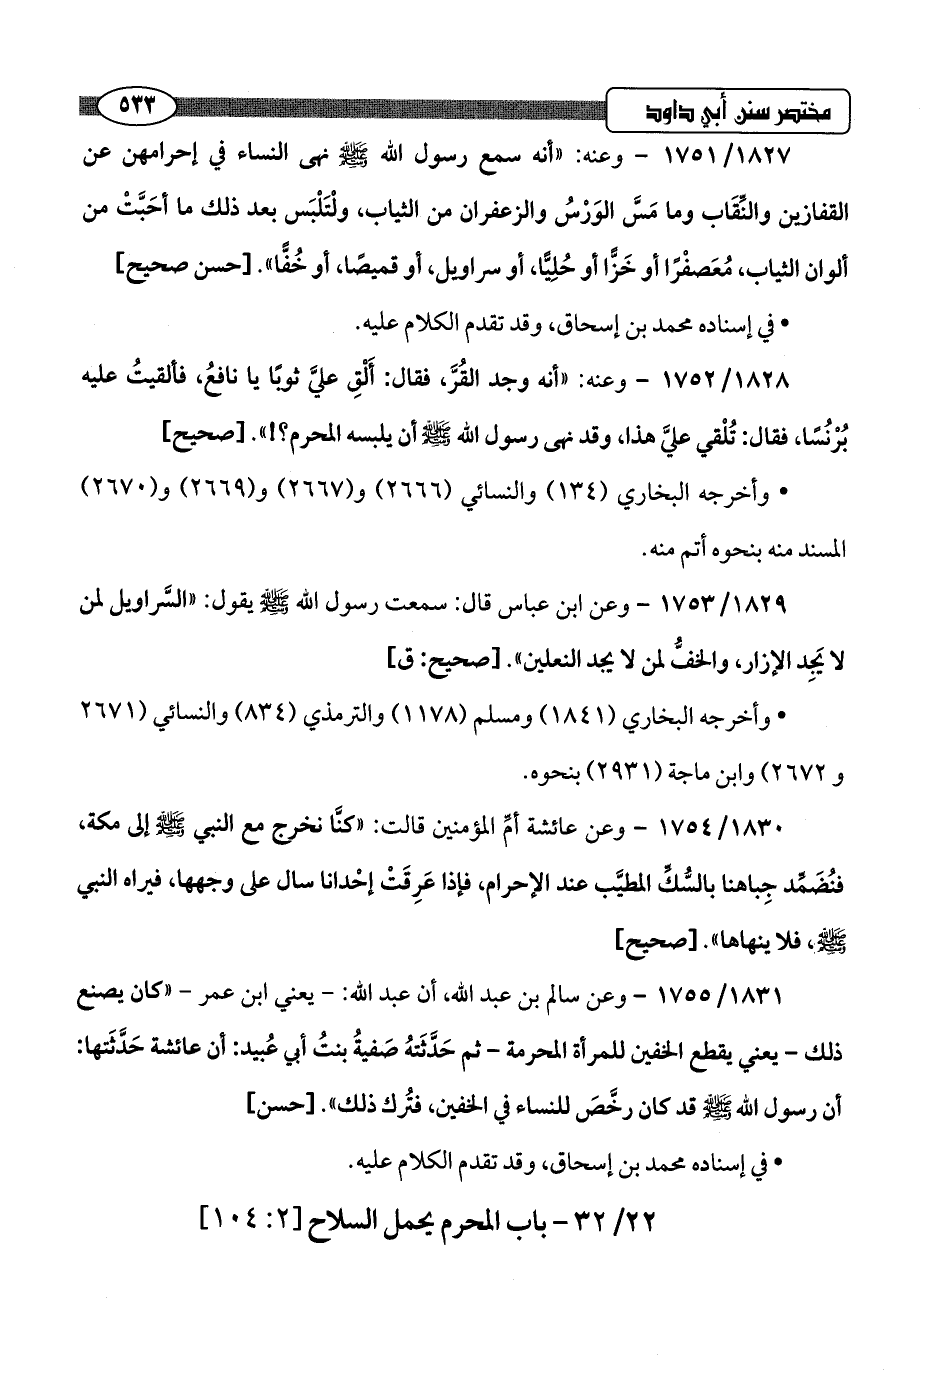 مختصر سنن أبي داود ٥٣٣
١٧٥١/١٨٢٧ - وعنه: «أنه سمع رسول الله ﷺ نهى النساء في إحرامهن عن
القفازين والنِّقَاب وما مَسَّ الوَرْسُ والزعفران من الثياب، ولْتَلْبَس بعد ذلك ما أحَبَّتْ من
ألوان الثياب، مُعَصفْرًا أو خَزًّا أو حُلِيًّا، أو سراويل، أو قميصًا، أو خُفًّا». [حسن صحيح]
• في إسناده محمد بن إسحاق، وقد تقدم الكلام عليه.
١٧٥٢/١٨٢٨ - وعنه: «أنه وجد القُرَّ، فقال: أَلْقِ عليَّ ثوبًا يا نافعُ، فألقيتُ عليه
بُرْنُسًا، فقال: تُلْقي عليَّ هذا، وقد نهى رسول الله ﷺ أن يلبسه المحرم؟!». [صحيح]
• وأخرجه البخاري (١٣٤) والنسائي (٢٦٦٦) و(٢٦٦٧) و(٢٦٦٩) و(٢٦٧٠)
المسند منه بنحوه أتم منه.
١٧٥٣/١٨٢٩ - وعن ابن عباس قال: سمعت رسول الله ﷺ يقول: «السَّراويل لمن
لا يَجِد الإزار، والخفُّ لمن لا يجد النعلين». [صحيح: ق]
• وأخرجه البخاري (١٨٤١) ومسلم (١١٧٨) والترمذي (٨٣٤) والنسائي (٢٦٧١
و ٢٦٧٢) وابن ماجة (٢٩٣١) بنحوه.
١٧٥٤/١٨٣٠ - وعن عائشة أمِّ المؤمنين قالت: «كنَّا نخرج مع النبي ﷺ إلى مكة،
فنُضَمِّد جِباهنا بالسُّكِّ المطيَّب عند الإحرام، فإذا عَرِقَتْ إحْدانا سال على وجهها، فيراه النبي
ﷺ، فلا ينهاها». [صحيح]
١٧٥٥/١٨٣١ - وعن سالم بن عبد الله، أن عبد الله: - يعني ابن عمر - «كان يصنع
ذلك - يعني يقطع الخفين للمرأة المحرمة - ثم حَدَّثَتهُ صَفيةُ بنتُ أبي عُبيد: أن عائشة حَدَّثَتها:
أن رسول الله ﷺ قد كان رخَّصَ للنساء في الخفين، فتُرك ذلك». [حسن]
• في إسناده محمد بن إسحاق، وقد تقدم الكلام عليه.
٣٢/٢٢ - باب المحرم يحمل السلاح [٢: ١٠٤]